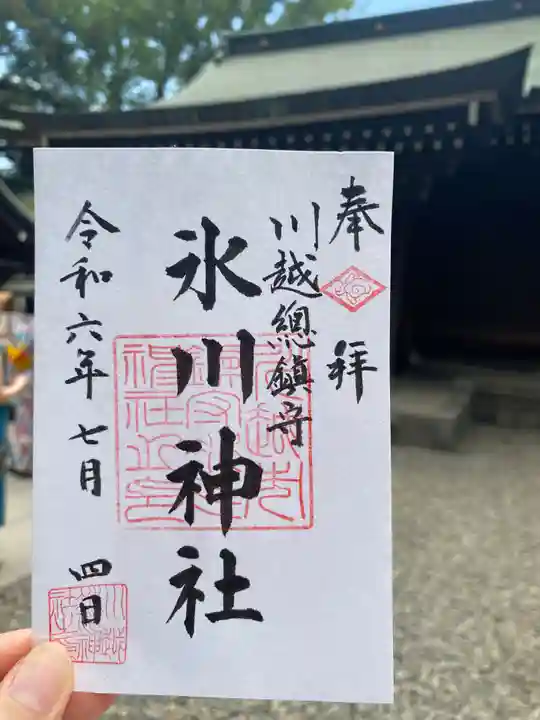 奉拝
川越總鎮守
氷川神社
令和六年七月四日